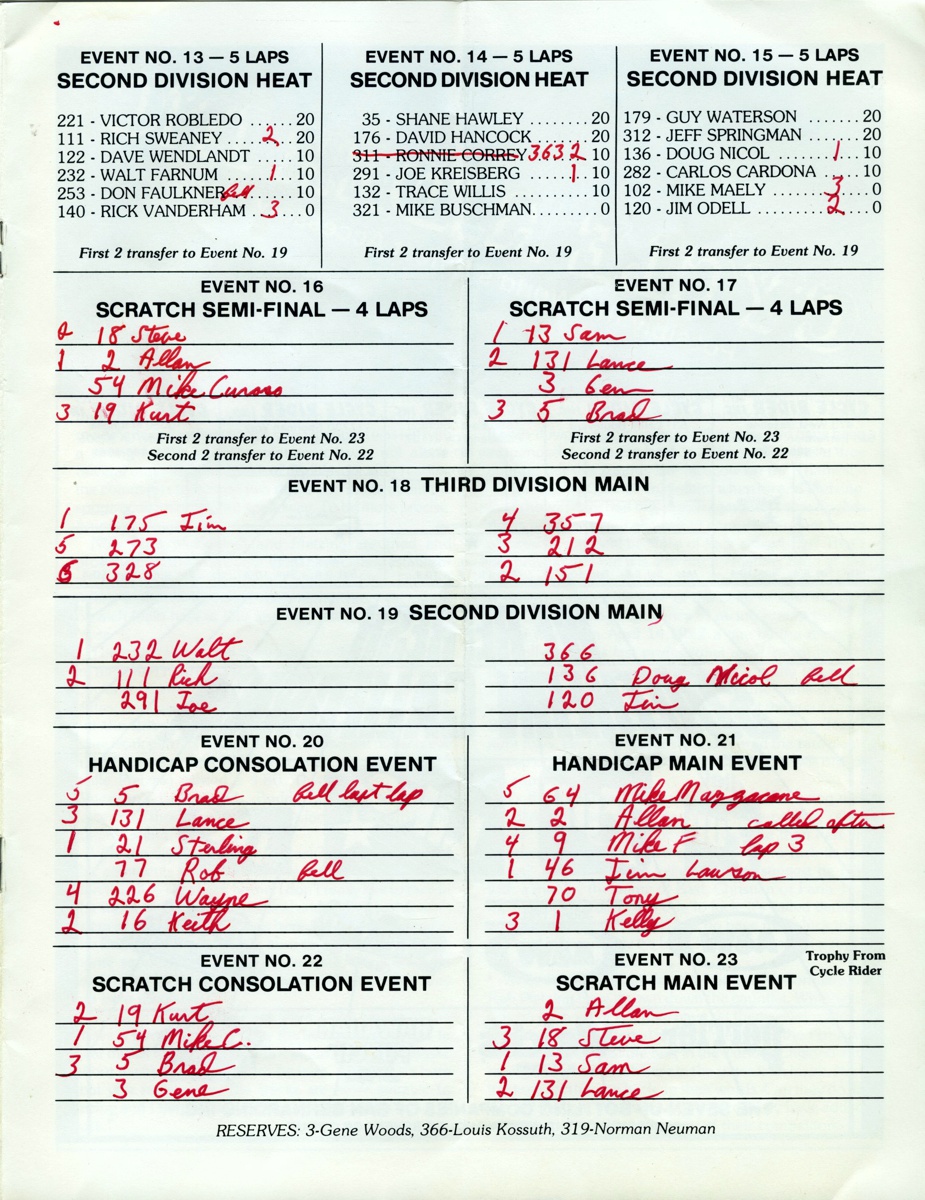 EVENT NO. 13 — 5 LAPS
SECOND DIVISION HEAT
221 - VICTOR ROBLEDO ...... 20
111 - RICH SWEANEY ....2... 20
122 - DAVE WENDLANDT ..... 10
232 - WALT FARNUM ....1.... 10
253 - DON FAULKNER fell .... 10
140 - RICK VANDERHAM ..3... 0
First 2 transfer to Event No. 19
EVENT NO. 14 — 5 LAPS
SECOND DIVISION HEAT
35 - SHANE HAWLEY ........ 20
176 - DAVID HANCOCK ....... 20
311 - RONNIE CORREY 363 2 10
291 - JOE KREISBERG ....1.... 10
132 - TRACE WILLIS .......... 10
321 - MIKE BUSCHMAN ......... 0
First 2 transfer to Event No. 19
EVENT NO. 15 — 5 LAPS
SECOND DIVISION HEAT
179 - GUY WATERSON ...... 20
312 - JEFF SPRINGMAN ..... 20
136 - DOUG NICOL ....1.... 10
282 - CARLOS CARDONA .... 10
102 - MIKE MAELY ......3.... 0
120 - JIM ODELL .........2.... 0
First 2 transfer to Event No. 19
EVENT NO. 16
SCRATCH SEMI-FINAL — 4 LAPS
2 18 Steve
1 2 Allan
54 Mike Curoso
3 19 Kurt
First 2 transfer to Event No. 23
Second 2 transfer to Event No. 22
EVENT NO. 17
SCRATCH SEMI-FINAL — 4 LAPS
1 13 Sam
2 131 Lance
3 Gene
3 5 Brad
First 2 transfer to Event No. 23
Second 2 transfer to Event No. 22
EVENT NO. 18 THIRD DIVISION MAIN
1 175 Jim
5 273
6 328
4 357
3 212
2 151
EVENT NO. 19 SECOND DIVISION MAIN
1 232 Walt
2 111 Rich
291 Joe
366
136 Doug Nicol fell
120 Jim
EVENT NO. 20
HANDICAP CONSOLATION EVENT
5 5 Brad fell last lap
3 131 Lance
1 21 Sterling
77 Rob fell
4 226 Wayne
2 16 Keith
EVENT NO. 21
HANDICAP MAIN EVENT
5 64 Mike Mazzacane
2 2 Allan called after
4 9 Mike F lap 3
1 46 Jim Lawson
70 Tony
3 1 Kelly
EVENT NO. 22
SCRATCH CONSOLATION EVENT
2 19 Kurt
1 54 Mike C.
3 5 Brad
3 Gene
EVENT NO. 23
SCRATCH MAIN EVENT
Trophy From
Cycle Rider
2 Allan
3 18 Steve
1 13 Sam
2 131 Lance
RESERVES: 3-Gene Woods, 366-Louis Kossuth, 319-Norman Neuman